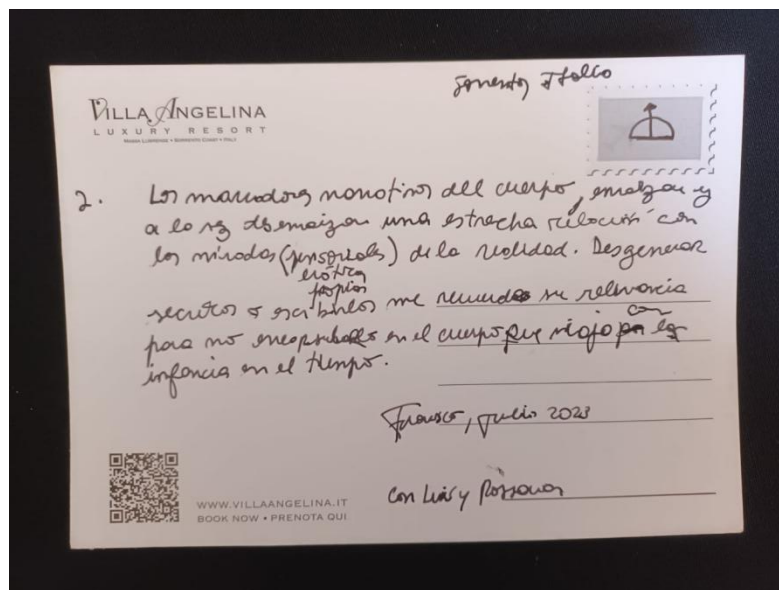 VILLA ANGELINA
LUXURY RESORT
MASSA LUBRENSE • SORRENTO COAST • ITALY
2. Los marcadores narrativos del cuerpo, enraizan y
a la vez desenraizan una estrecha relación con
las miradas (personales) de la realidad. Desgenerar
erótica
propias
secretos o escribirlos me recuerda su relevancia
para no en el cuerpo que viajo con la
infancia en el tiempo.
julio 2023
con Luis y Rossana
WWW.VILLAANGELINA.IT
BOOK NOW • PRENOTA QUI